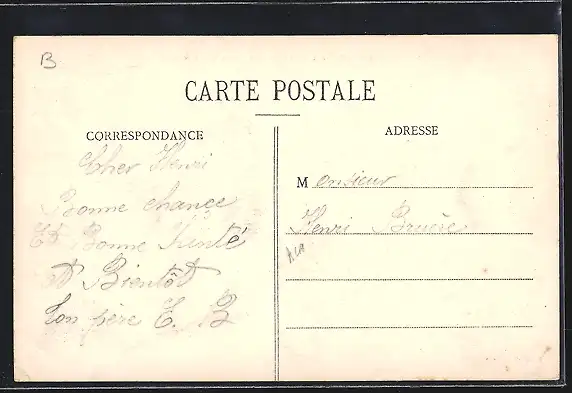 B
CARTE POSTALE
CORRESPONDANCE
Cher Henri
Bonne chance
Et Bonne Santé
A Bientôt
Ton père E. B
ADRESSE
Monsieur
Henri Bruère